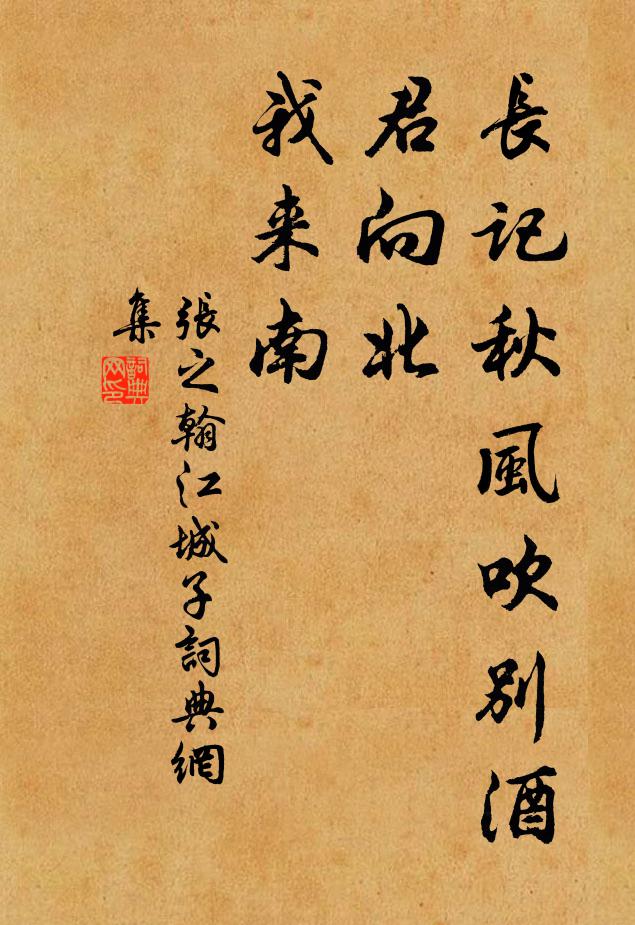 長记秋風吹别酒
君向北
我来南
張之翰江城子詞典網
集
詞典網印